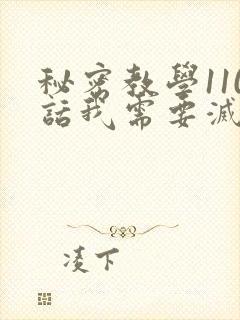 秘密教學110
話我需要減
凌下